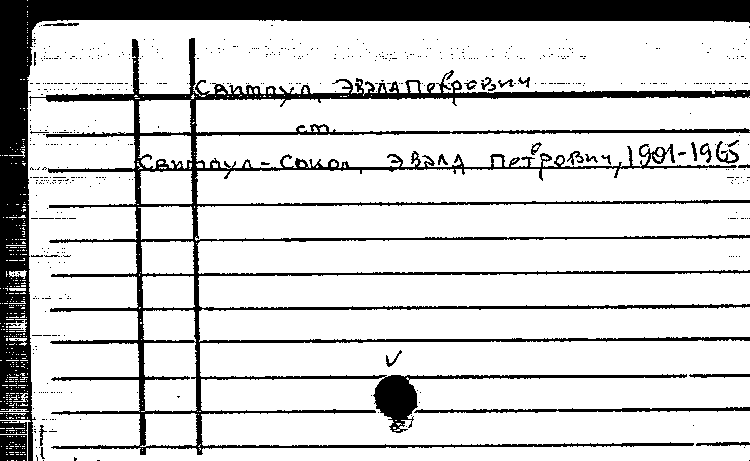 Свитпул, Эвалд Петрович
ст.
Свитпул-Сокол, Эвалд Петрович, 1901-1965